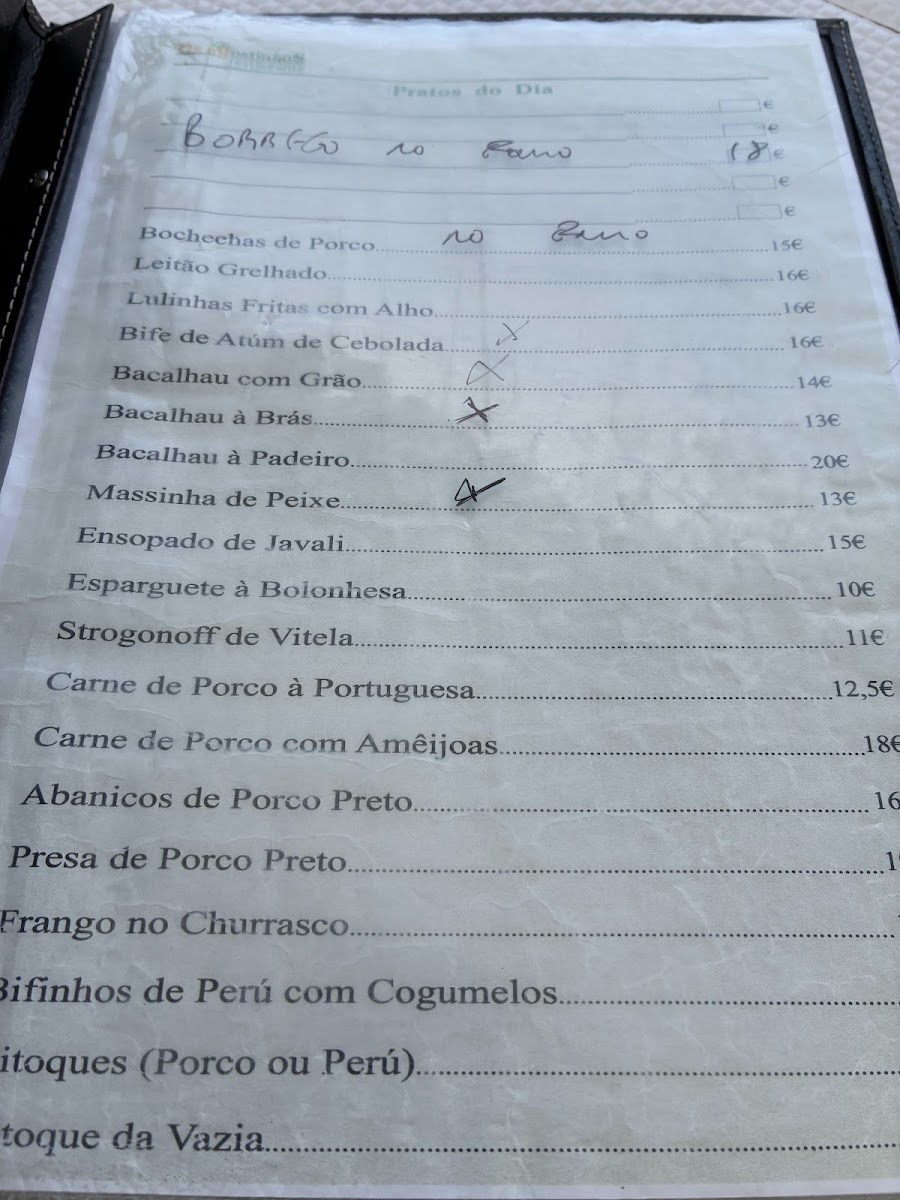 Pratos do Dia
€
€
BORREGO no Forno 18€
€
€
Bochechas de Porco no Forno 15€
Leitão Grelhado 16€
Lulinhas Fritas com Alho 16€
Bife de Atúm de Cebolada X 16€
Bacalhau com Grão X 14€
Bacalhau à Brás X 13€
Bacalhau à Padeiro 20€
Massinha de Peixe X 13€
Ensopado de Javali 15€
Esparguete à Bolonhesa 10€
Strogonoff de Vitela 11€
Carne de Porco à Portuguesa 12,5€
Carne de Porco com Amêijoas 18€
Abanicos de Porco Preto 16
Presa de Porco Preto 1
Frango no Churrasco
Bifinhos de Perú com Cogumelos
itoques (Porco ou Perú)
toque da Vazia